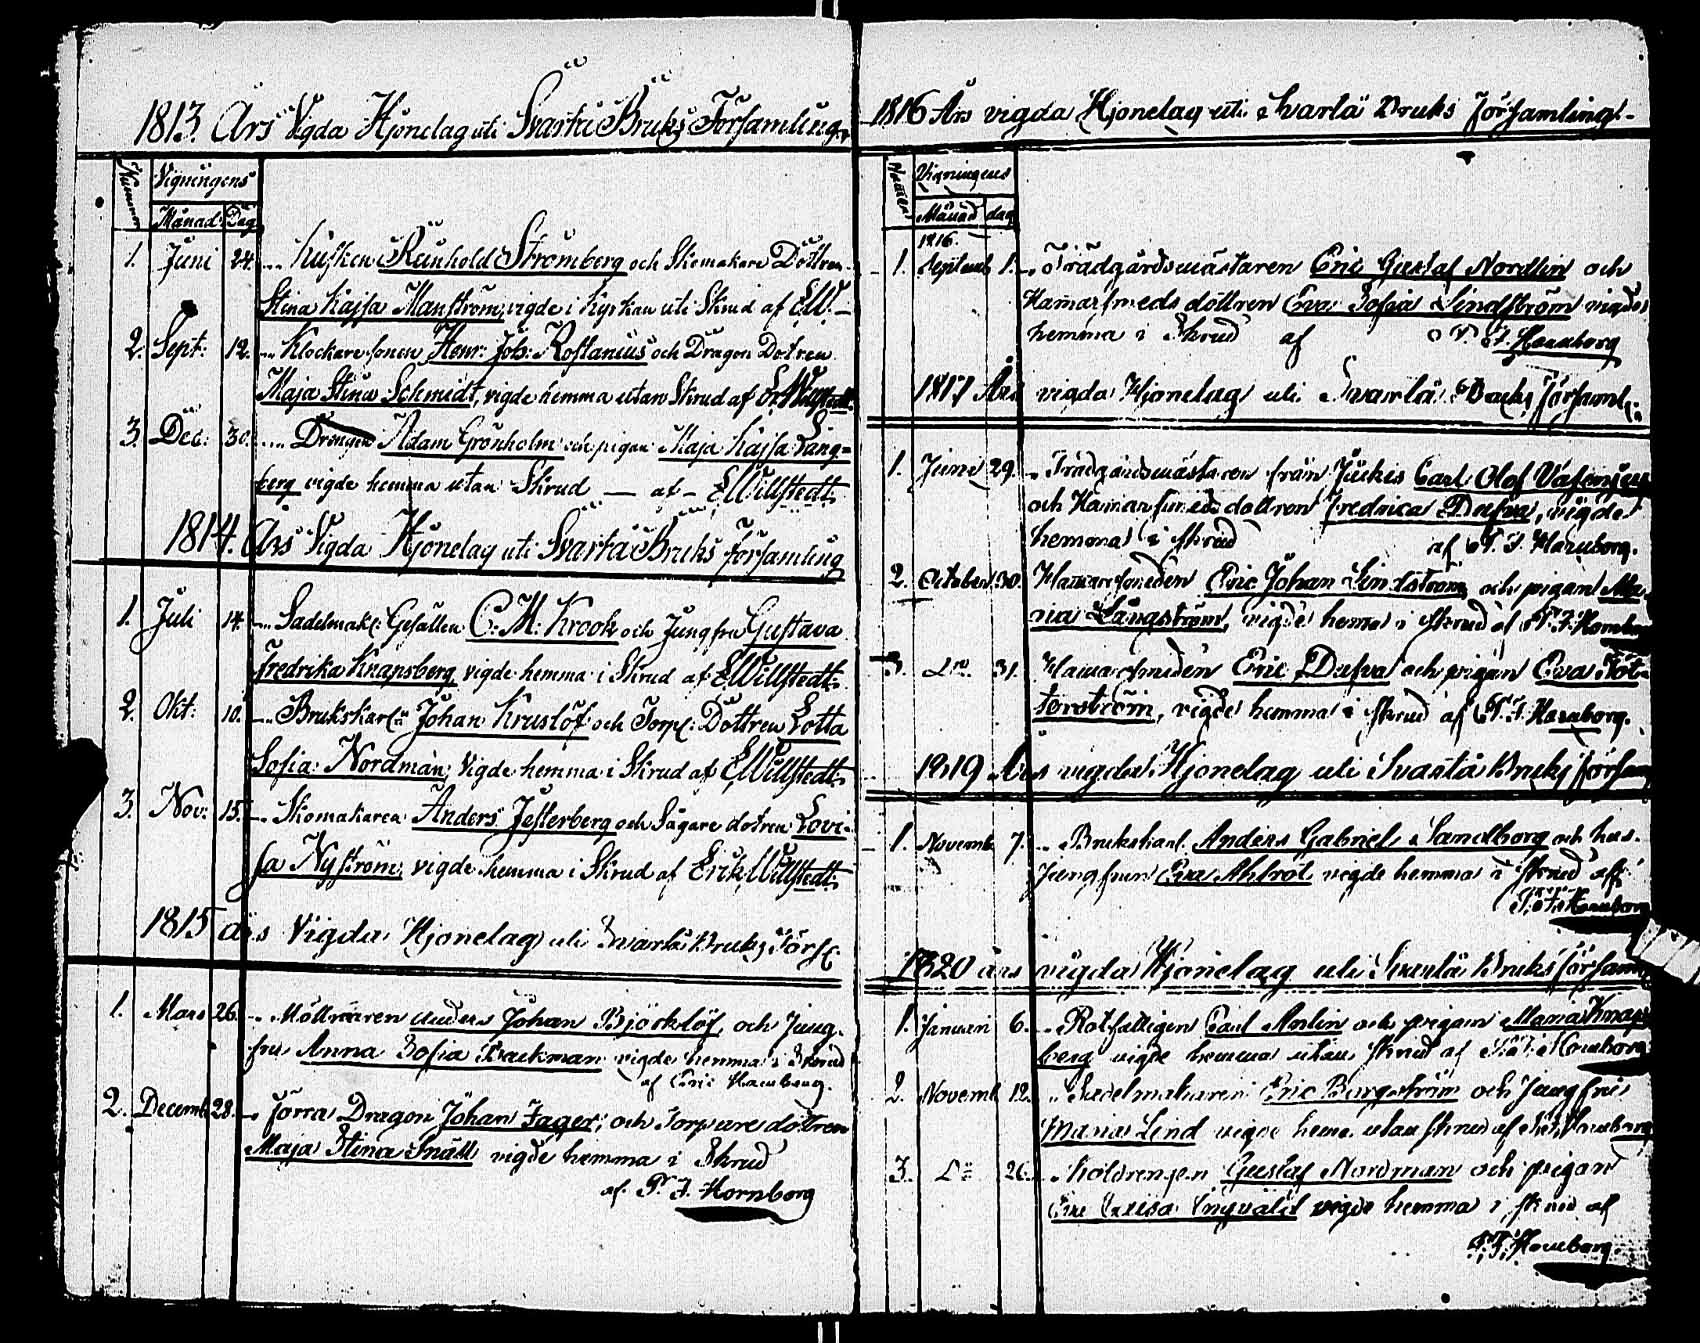 1813. Års Vigda Hjonelag uti Svartå Bruks Församling.
Nummer
Vigningens
Månad Dag
1. Juni 24. Kusken Reinhold Strömberg och Skomakare Dottren
Stina Kajsa Manström, vigde i Kyrkan uti Skrud af E.W.
2. Sept: 12. Klockare sonen Henr: Joh: Rostanius och Dragon Dotren
Maja Stina Schmidt, vigde hemma utan Skrud af E. Willstedt.
3. Dec: 30. Drengen Adam Grönholm och pigan Maja Kajsa Lång=
berg vigde hemma utan Skrud — af — E Willstedt
1814. Års Vigda Hjonelag uti Svartå Bruks församling
1. Juli 14. Sadelmak: Gesällen C: M: Krook och Jungfru Gustava
Fredrika Knapsberg vigde hemma i Skrud af E Willstedt.
2. Okt: 10. Brukskarln Johan Kruslöf och Torp: Dottren Lotta
Sofia Nordman, vigde hemma i Skrud af E Willstedt
3. Nov: 15. Skomakaren Anders Jesterberg och Sågare dotren Lovi-
sa Nyström, vigde hemma i Skrud af Erik Willstedt
1815 års Vigda Hjonelag uti Svartå Bruks Förs:
1. Mars 26. Möllnaren Anders Johan Björklöf, och Jung-
fru Anna Sofia Backman vigde hemma i Skrud
af Eric Hornborg.
2. Decemb. 28. Förra Dragon Johan Jager, och Torpare dotren
Maja Stina Snäll vigde hemma i Skrud
af. P. F. Hornborg
1816 Års vigda Hjonelag uti Svartå Bruks Församling.
Vigningens
Månad dag
1816.
1. Septemb 1. Trädgårdsmästaren Eric Gustaf Nordlin och
Hamarsmeds dottren Eva Sofia Lindström vigdes
hemma i Skrud af P. F. Hornborg
1817 Års vigda Hjonelag uti Svartå Bruks Församl:
1. Junii 29. Trädgårdsmästaren från Juckis Carl Olof
och Hamarsmeds dottren Fredrica Dufva, vigde
hemma i skrud af P. F. Hornborg.
2. October 30. Hamarsmeden Eric Johan Lindström och pigan Ma-
ria Långström, vigde hema i skrud af P. F. Hornborg
3. Do 31. Hamarsmeden Eric Dufva och pigan Eva
vigde hemma i skrud af P. F. Hornborg.
1819 Års vigda Hjonelag uti Svartå Bruks Försam
1. Novemb 7. Brukskarl. Anders Gabriel Sandborg och hus-
Jungfrun Eva Ahlrot vigde hemma i skrud aff
P. F. Hornborg
1820 års vigda Hjonelag uti Svartå Bruks församl
1. Januari 6. Rotfattigen Carl Ahlin och pigan Maria Knaps
berg vigde hemma utan skrud af P. F. Hornborg
2. Novemb 12. Sadelmakaren Eric Bergström och Jungfru
Maria Lind vigde hema utan skrud af P. F. Hornborg
3. Do 26. Koldrengen Gustaf Nordman och pigan
vigde hemma i skrud af
P. F. Hornborg.